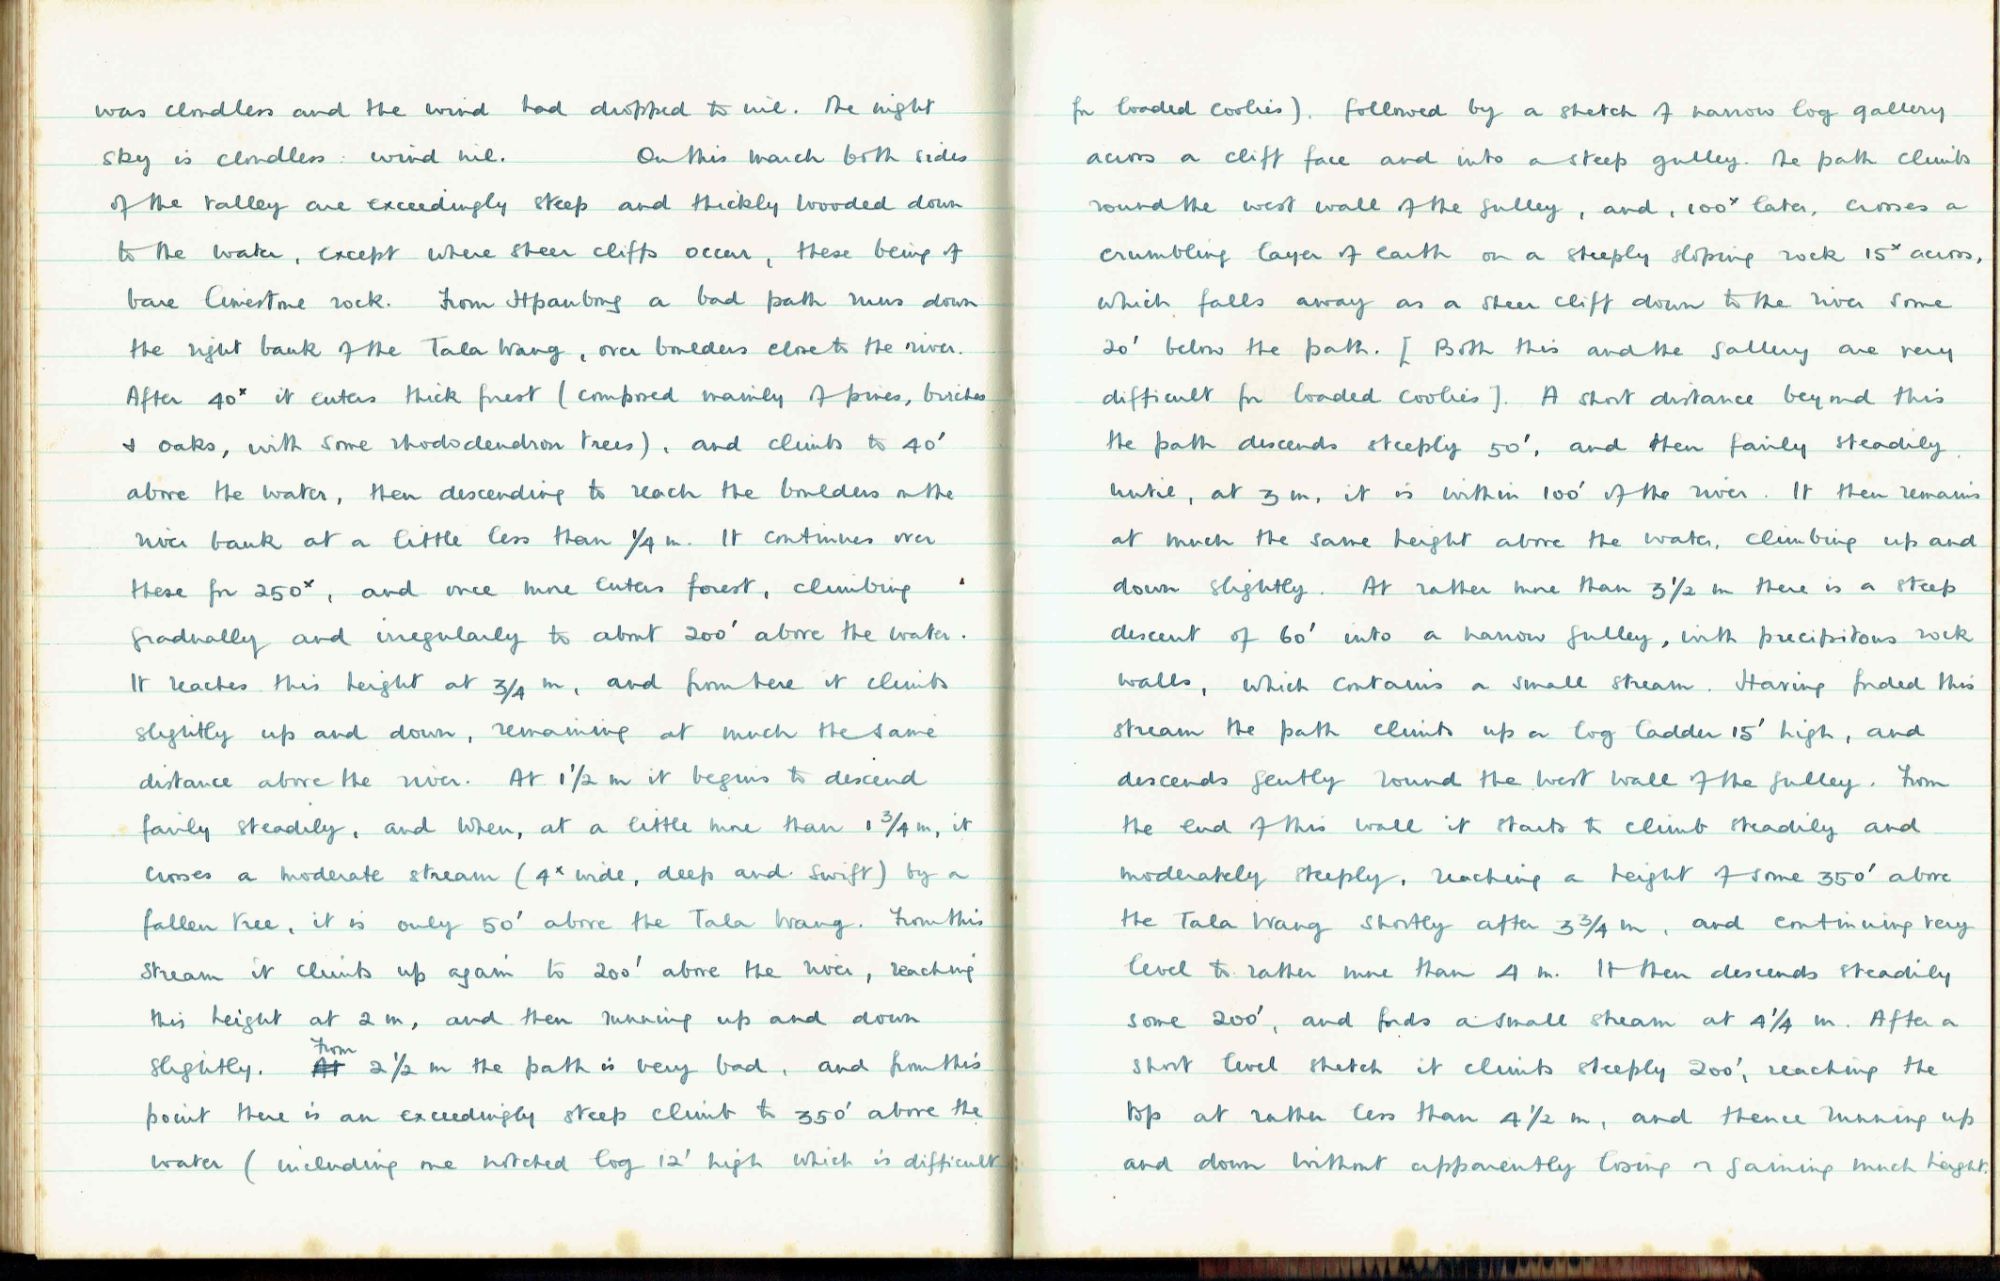 was cloudless and the wind had dropped to nil. The night
sky is cloudless: wind nil. On this march both sides
of the valley are exceedingly steep and thickly wooded down
to the water, except where sheer cliffs occur, these being of
bare limestone rock. From Hpaubong a bad path runs down
the right bank of the Tala Wang, over boulders close to the river.
After 40ˣ it enters thick forest (composed mainly of pines, birches
& oaks, with some rhododendron trees), and climbs to 40'
above the water, then descending to reach the boulders on the
river bank at a little less than 1/4 m. It continues over
these for 250ˣ, and once more enters forest, climbing
gradually and irregularly to about 200' above the water.
It reaches this height at 3/4 m, and from here it climbs
slightly up and down, remaining at much the same
distance above the river. At 1 1/2 m it begins to descend
fairly steadily, and when, at a little more than 1 3/4 m, it
crosses a moderate stream (4ˣ wide, deep and swift) by a
fallen tree, it is only 50' above the Tala Wang. From this
stream it climbs up again to 200' above the river, reaching
this height at 2 m, and then running up and down
slightly. From 2 1/2 m the path is very bad, and from this
point there is an exceedingly steep climb to 350' above the
water (including one notched log 12' high which is difficult
for loaded coolies). Followed by a stretch of narrow log gallery
across a cliff face and into a steep gulley. The path climbs
round the west wall of the gulley, and, 100ˣ later, crosses a
crumbling layer of earth on a steeply sloping rock 15ˣ across,
which falls away as a sheer cliff down to the river some
20' below the path. [Both this and the gallery are very
difficult for loaded coolies]. A short distance beyond this
the path descends steeply 50', and then fairly steadily
until, at 3 m, it is within 100' of the river. It then remains
at much the same height above the water, climbing up and
down slightly. At rather more than 3 1/2 m there is a steep
descent of 60' into a narrow gulley, with precipitous rock
walls, which contains a small stream. Having forded this
stream the path climbs up a log ladder 15' high, and
descends gently round the west wall of the gulley. From
the end of this wall it starts to climb steadily and
moderately steeply, reaching a height of some 350' above
the Tala Wang shortly after 3 3/4 m, and continuing very
level to rather more than 4 m. It then descends steadily
some 200', and fords a small stream at 4 1/4 m. After a
short level stretch it climbs steeply 200', reaching the
top at rather less than 4 1/2 m, and thence running up
and down without apparently losing or gaining much height.